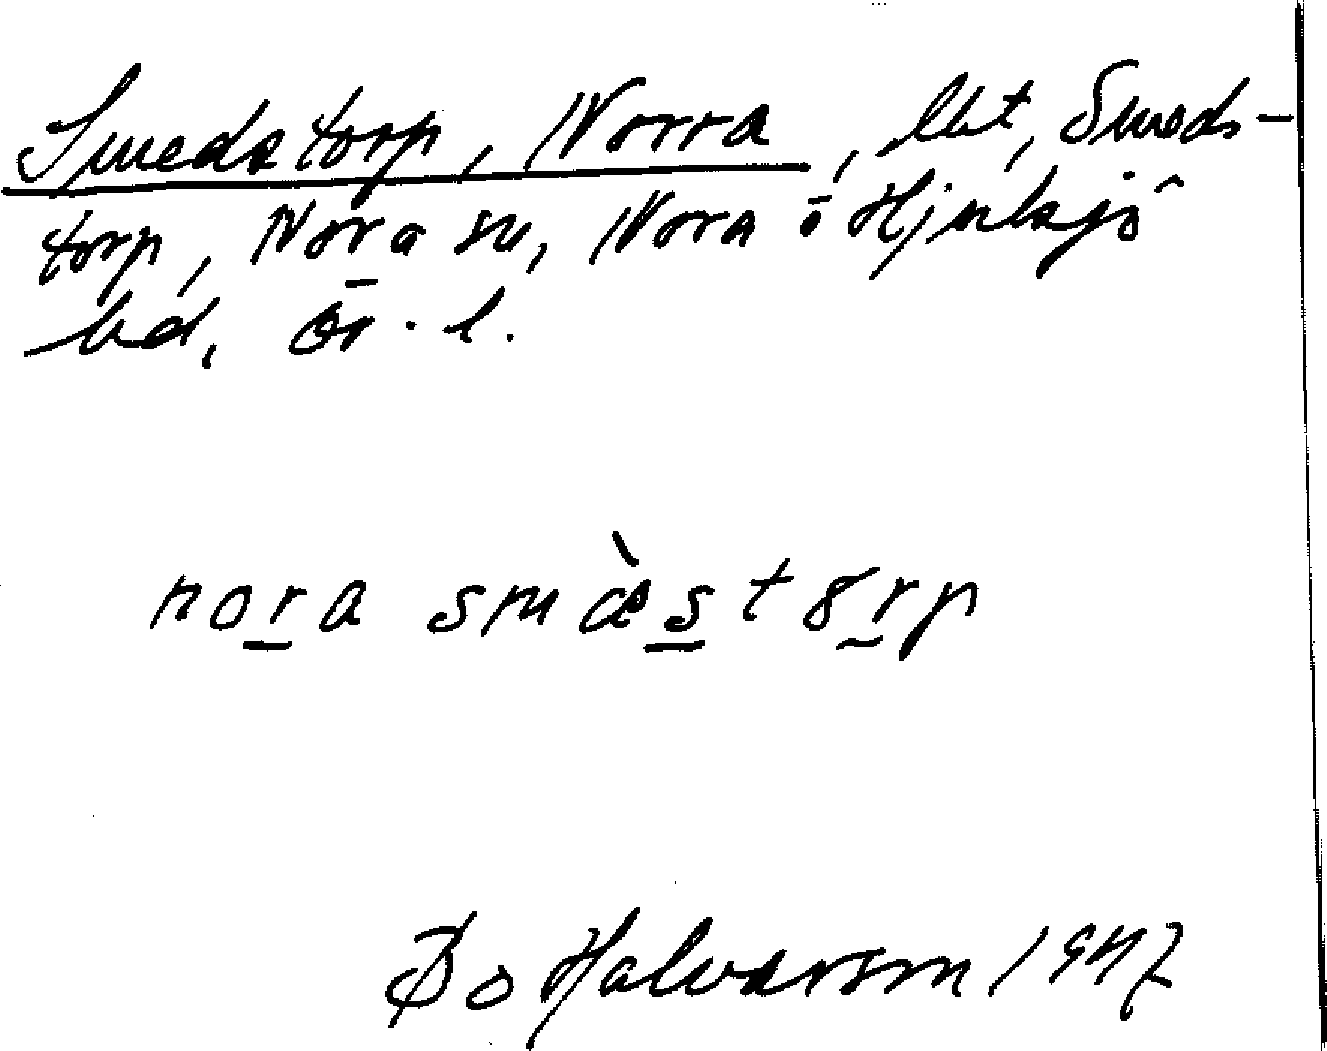 Smedstorp, Norra, lht, Smeds-
torp, Nora sn, Nora o Hjulsjö
bd, Ör. l.
nora smæ̀storp
Bo Halvarson 1947